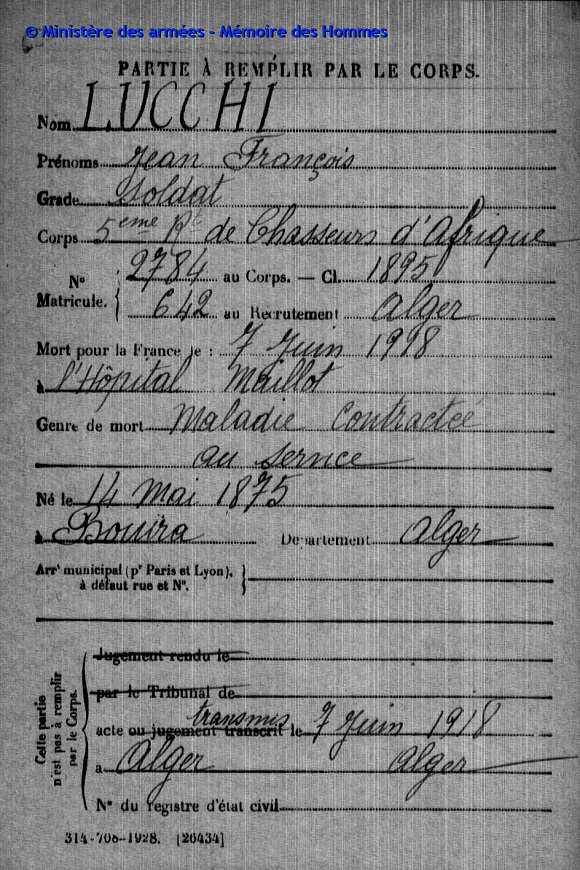 © Ministère des armées - Mémoire des Hommes
PARTIE À REMPLIR PAR LE CORPS.
Nom LUCCHI
Prénoms Jean François
Grade Soldat
Corps 5eme Rt de Chasseurs d'Afrique
N° Matricule. { 2784 au Corps. — Cl. 1895
642 au Recrutement Alger
Mort pour la France le : 7 Juin 1918
à l'Hôpital Maillot
Genre de mort Maladie Contractée
au service
Né le 14 Mai 1875
à Bouira Département Alger
Arrt municipal (pr Paris et Lyon), }
à défaut rue et N°.
Cette partie n'est pas à remplir par le Corps.
Jugement rendu le
par le Tribunal de
transmis
acte ou jugement transcrit le 7 Juin 1918
à Alger Alger
N° du registre d'état civil
314-708-1928. [26434]